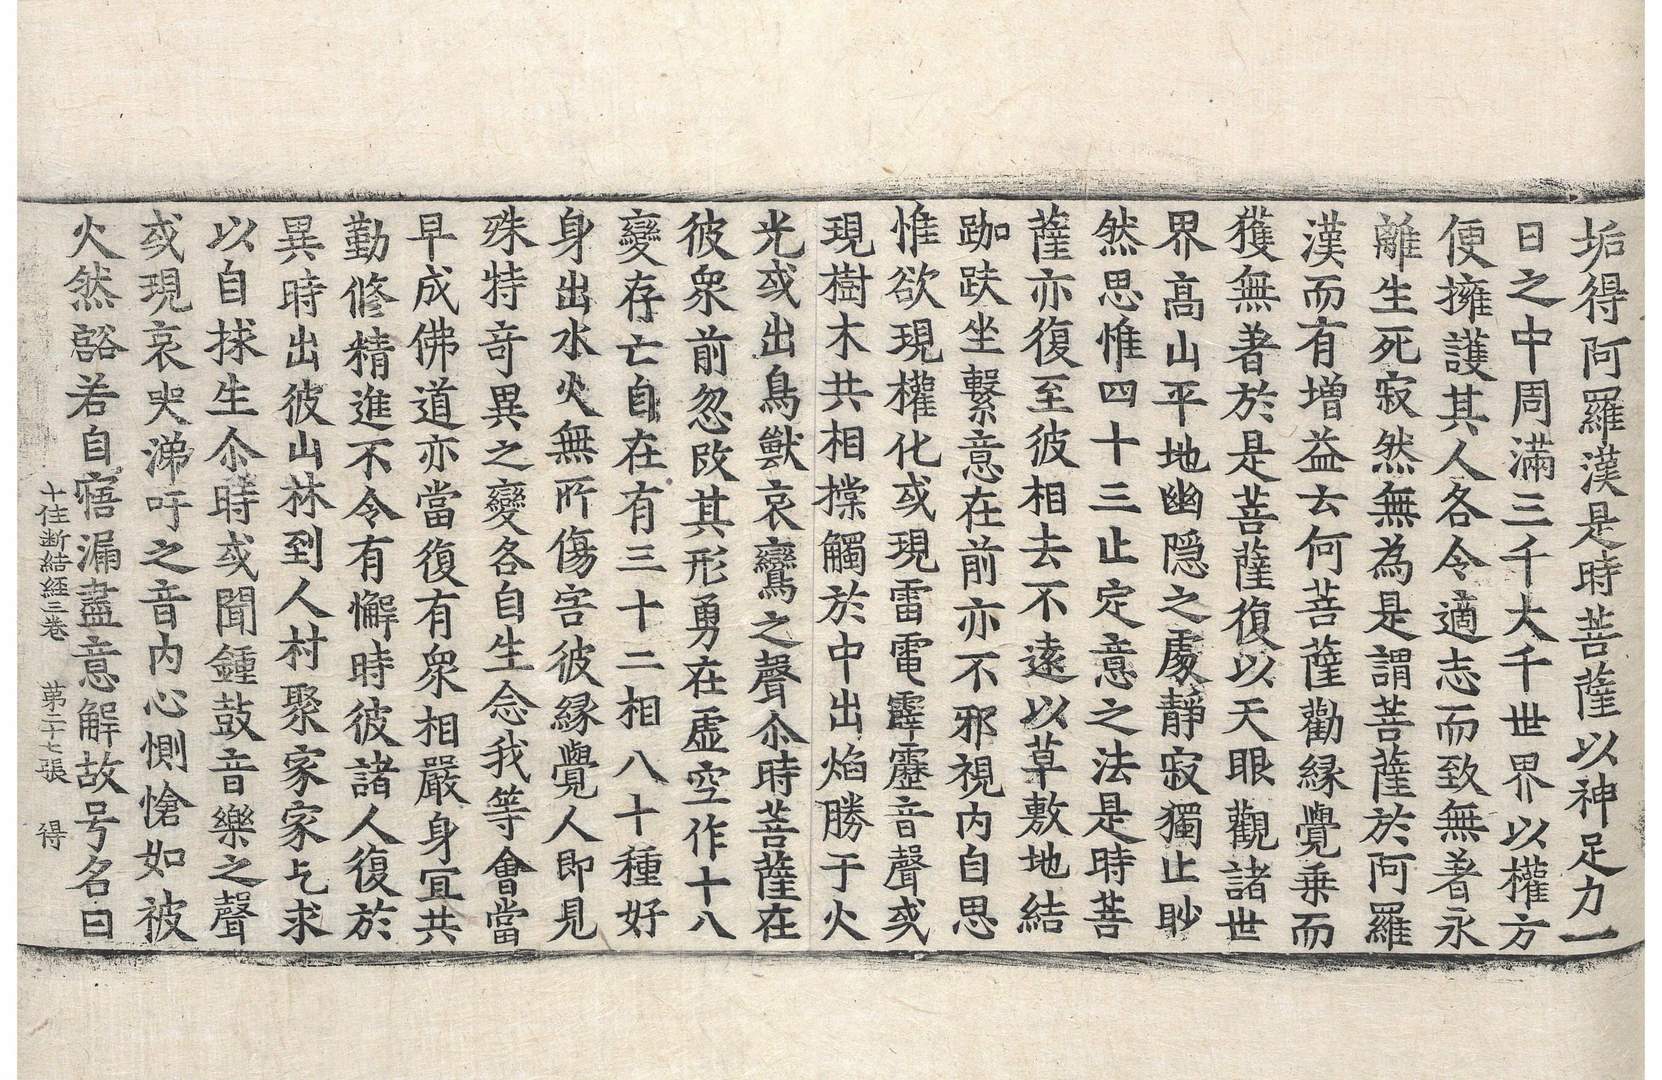 垢得阿羅漢是時菩薩以神足力一
日之中周滿三千大千世界以權方
便擁護其人各令適志而致無著永
離生死寂然無為是謂菩薩於阿羅
漢而有增益云何菩薩勸緣覺乘而
獲無著於是菩薩復以天眼觀諸世
界高山平地幽隱之處靜寂獨止眇
然思惟四十三止定意之法是時菩
薩亦復至彼相去不遠以草敷地結
跏趺坐繫意在前亦不邪視內自思
惟欲現權化或現雷電霹靂音聲或
現樹木共相摚觸於中出焰勝于火
光或出鳥獸哀鸞之聲尒時菩薩在
彼衆前忽改其形勇在虛空作十八
變存亡自在有三十二相八十種好
身出水火無所傷害彼緣覺人即見
殊特奇異之變各自生念我等會當
早成佛道亦當復有衆相嚴身宜共
勤修精進不令有懈時彼諸人復於
異時出彼山林到人村聚家家乞求
以自捄生尒時或聞鍾鼓音樂之聲
或現哀哭涕吁之音內心惻愴如被
火然豁若自寤漏盡意解故号名曰
十住断結経三巻 第二十七張 得